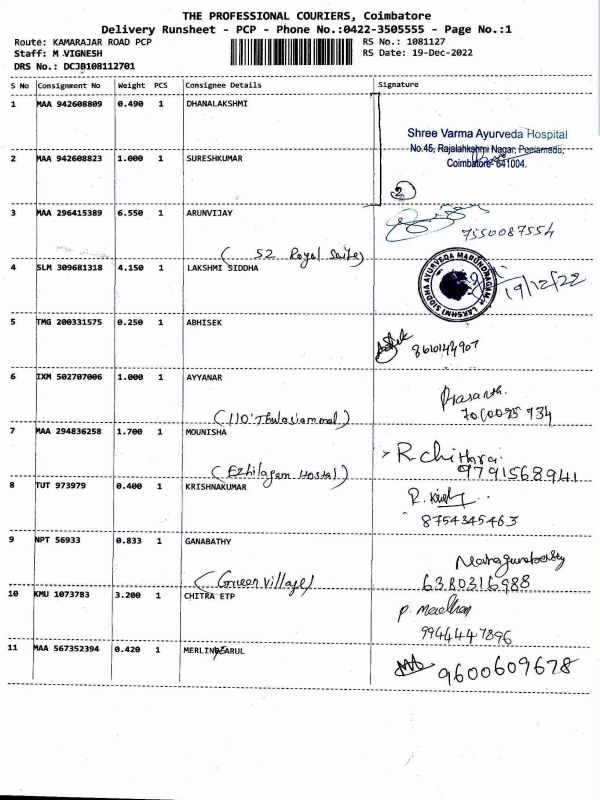 THE PROFESSIONAL COURIERS, Coimbatore
Delivery Runsheet - PCP - Phone No.:0422-3505555 - Page No.:1
Route: KAMARAJAR ROAD PCP RS No.: 1081127
Staff: M VIGNESH RS Date: 19-Dec-2022
DRS No.: DCJB108112701
S No Consignment No Weight PCS Consignee Details Signature
1 MAA 942608809 0.490 1 DHANALAKSHMI
Shree Varma Ayurveda Hospital
No.45, Rajalahkshmi Nagar, Peelamedu,
Coimbatore- 641004.
2 MAA 942608823 1.000 1 SURESHKUMAR
2
3 MAA 296415389 6.550 1 ARUNVIJAY
7550087554
(52 Royal Suite)
4 SLM 309681318 4.150 1 LAKSHMI SIDDHA
LAKSHMI SIDDHA AYURVEDA MARUNDHAGAM
19/12/22
5 TMG 200331575 0.250 1 ABHISEK
8610144907
6 IXM 502707006 1.000 1 AYYANAR
Prasanth.
(110' Thulasiammal)
7 MAA 294836258 1.700 1 MOUNISHA
R. Chithra
9791568941
(Ezhilagam Hostal)
8 TUT 973979 0.400 1 KRISHNAKUMAR
8754345463
9 NPT 56933 0.833 1 GANABATHY
6380316988
(Green village)
10 KMU 1073783 3.200 1 CHITRA ETP
9944447896
11 MAA 567352394 0.420 1 MERLIN ARUL
9600609678